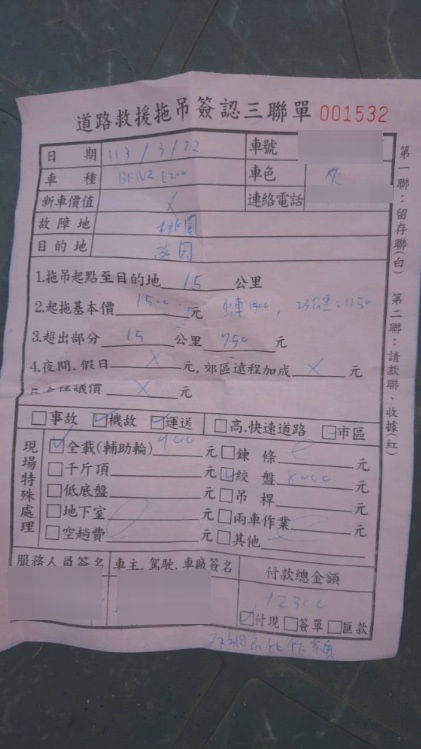 道路救援拖吊簽認三聯單 001532
日期 113/3/22 車號
車種 BENZ E200 車色 灰
新車價值 X 連絡電話
故障地 桃園
目的地
1.拖吊起點至目的地 15 公里
2.起拖基本價 1500 元
3.超出部分 15 公里 750 元
4.夜間.假日 X 元,郊區遠程加成 X 元
議價 X 元
事故 機故 運送 高.快速道路 市區
現場特殊處理
全載(輔助輪) 元 鍊條 元
千斤頂 元 絞盤 8000 元
低底盤 元 吊桿 元
地下室 元 兩車作業 元
空趟費 元 其他 元
服務人員簽名 車主.駕駛.車廠簽名 付款總金額
12300
付現 簽單 匯款
第一聯:留存聯(白) 第二聯:請款聯、收據(紅)